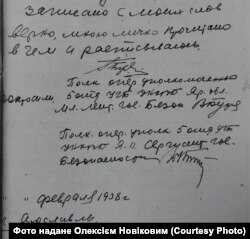 записано с моих слов
верно, мною лично прочитано
в чем и расписываюсь.
допросил:
Пом. опер уполномоченного
5 отд. УГБ УНКВД Яр. обл.
мл. лейт. гос. Безоп
Пом. опер. уполн. 5 отд УГБ
УНКВД Я.О Сержант гос.
Безопасности
" февраля 1938 г.
г. Ярославль.
Фото надане Олексієм Новіковим (Courtesy Photo)